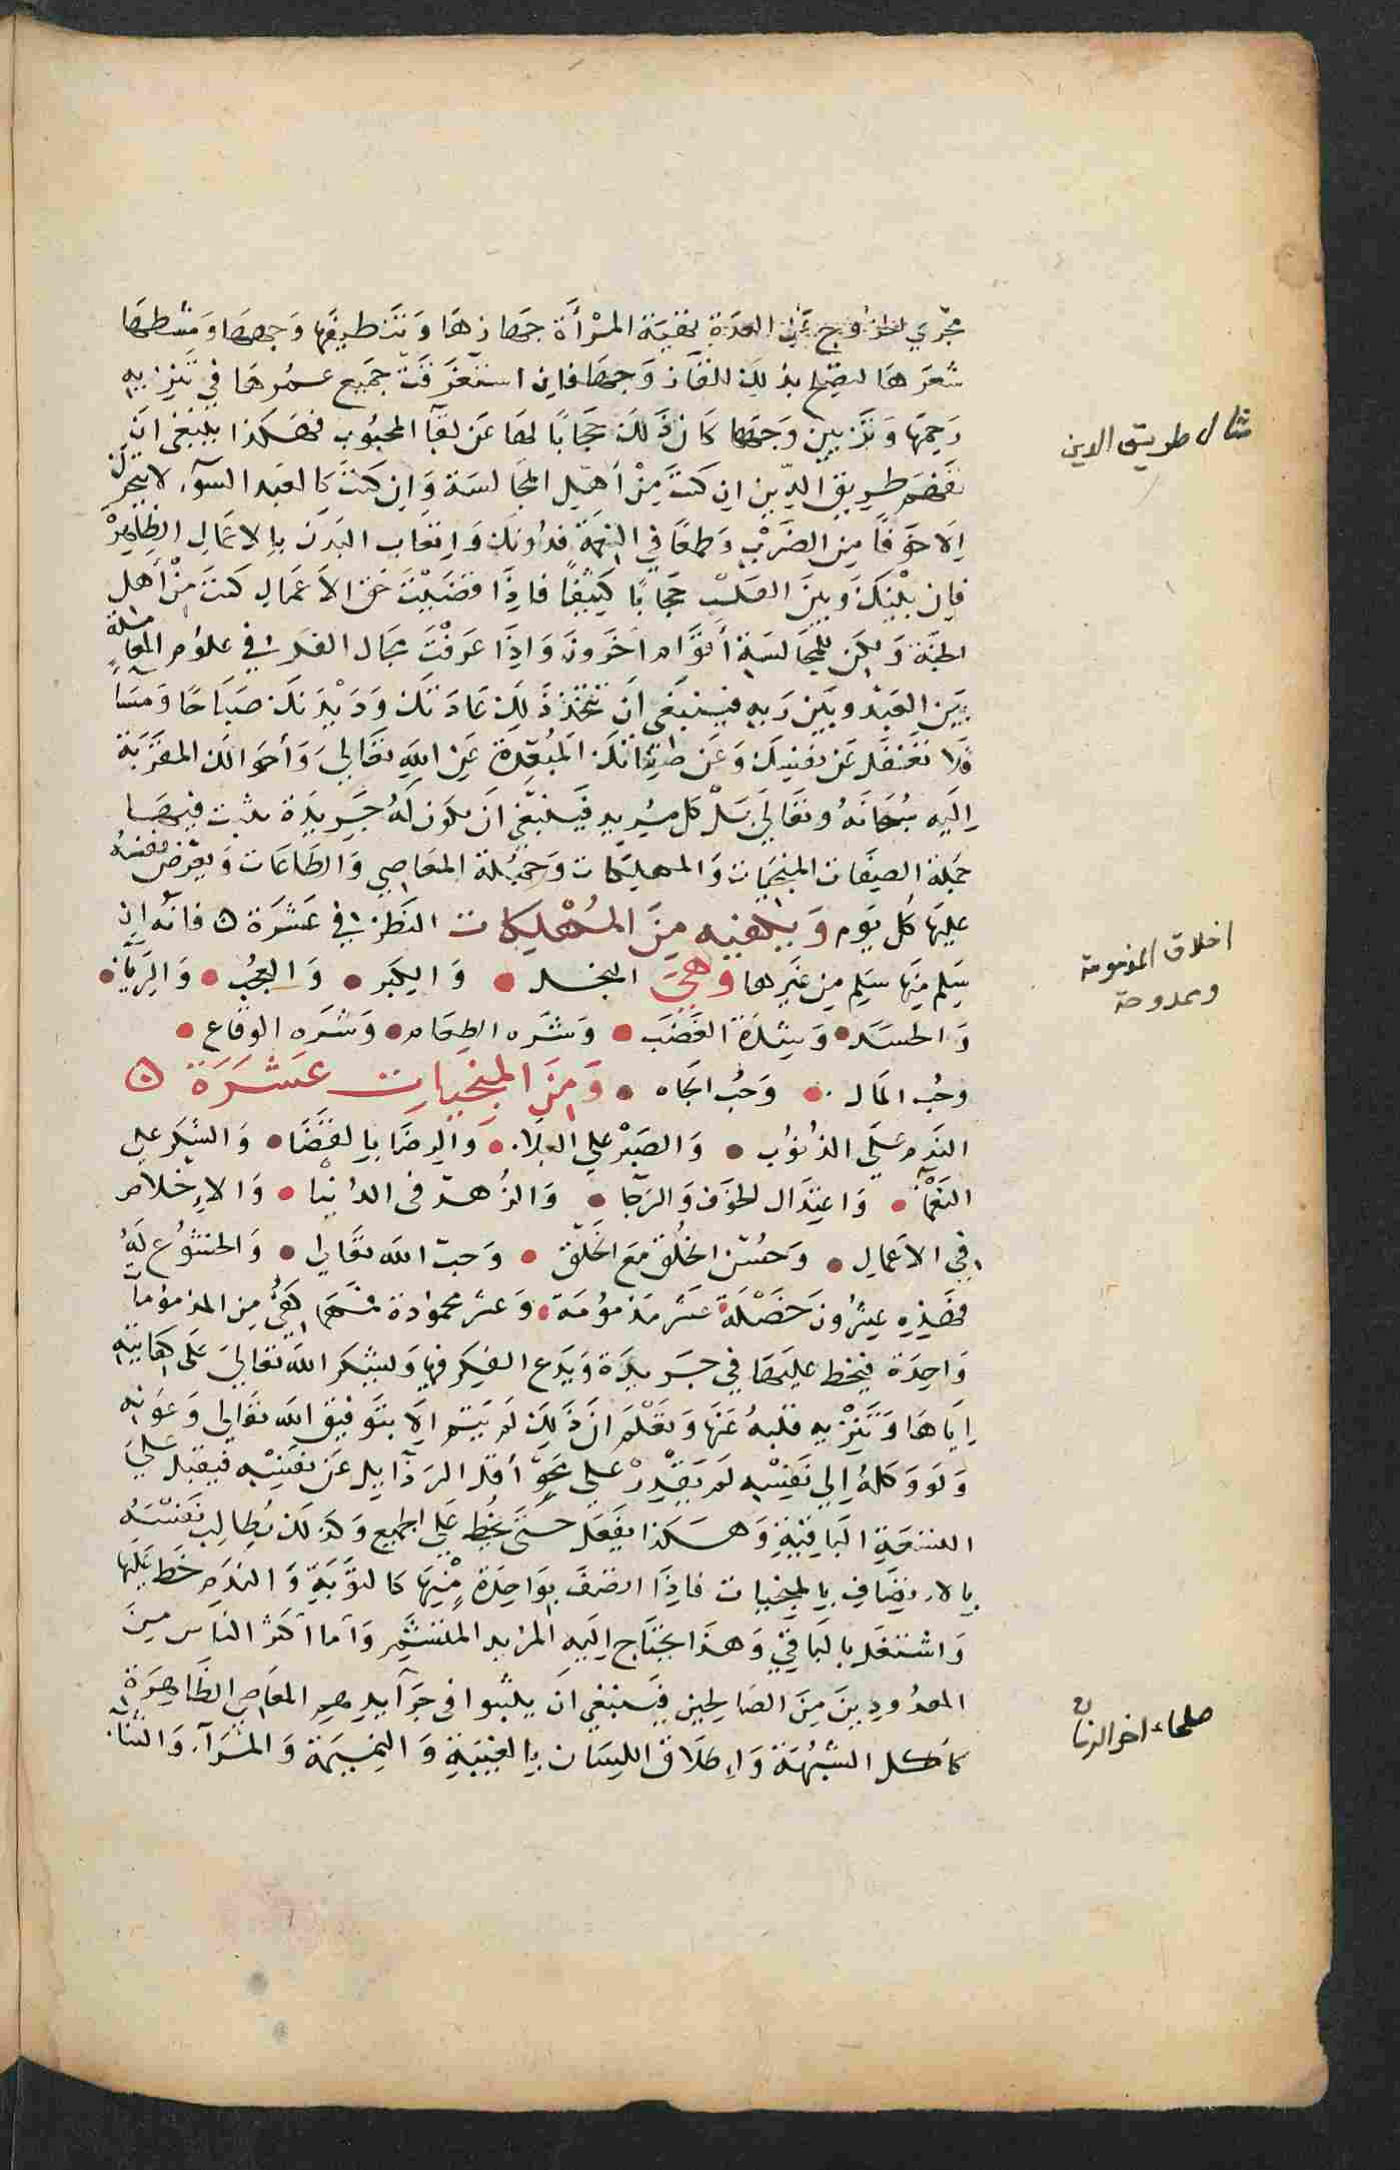 مجري الخروج عن العدة تنقية المرأة جهازها وتنظيفها وجهها ومشطها
شعرها ليصلح بذلك للقاء زوجها فإن استغرقت جميع عمرها في تنزيه
رحمها وتزيين وجهها كان ذلك حجابا لها عن لقآ المحبوب فهكذا ينبغي ان
مثال طريق الدين
تفهم طريق الدين ان كنت من أهل المجالسة وإن كنت كالعبد السوء لا يتحرك
إلا خوفا من الضرب وطمعا في الاجرة فدونك وإتعاب البدن بالاعمال الظاهرة
فإن بينك وبين القلب حجابا كثيفا فإذا قضيت حق الاعمال كنت من أهل
الجنة ولكن للمجالسة أقوام اخرون وإذا عرفت مجال الفكر في علوم المعاملة
بين العبد وبين ربه فينبغي ان تتخذ ذلك عادتك وديدنك صباحا ومسآ
فلا تغفل عن نفسك وعن صفاتك المبعدة عن الله تعالى وأحوالك المقربة
إليه سبحانه وتعالى بل كل مريد فينبغي ان يكون له جريدة يثبت فيها
جملة الصفات المنجيات والمهلكات وجملة المعاصي والطاعات ويعرض نفسه
عليها كل يوم ويكفيه من المهلكات النظر في عشرة ه فانه إن
اخلاق المذمومة
وممدوحة
سلم منها سلم من غيرها وهي البخل • والكبر • والعجب • والريآء •
والحسد • وشدة الغضب • وشره الطعام • وشره الوقاع •
وحب المال • وحب الجاه • ومن المنجيات عشرة ه
الندم على الذنوب • والصبر على البلاء • والرضا بالقضا • والشكر على
النعمآ • واعتدال الخوف والرجا • والزهد في الدنيا • والإخلاص
في الاعمال • وحسن الخلق مع الخلق • وحب الله تعالى • والخشوع له
فهذه عشرون خصلة عشر مذمومة • وعشر محمودة فمهما كفي من المذمومآ
واحدة فيخط عليها في جريدة ويدع الفكر فيها وليشكر الله تعالى على كفايته
إياها وتنزيه قلبه عنها ويعلم ان ذلك لم يتم إلا بتوفيق الله تعالى وعونه
ولو وكله إلى نفسه لم يقدر على محو أقل الرذآيل عن نفسه فيقبل على
التسعة الباقية وهكذا يفعل حتى يخط على الجميع وكذلك يطالب نفسه
بالاتصاف بالمنجيات فاذا اتصف بواحدة منها كالتوبة والندم خط عليها
واشتغل بالباقي وهذا يحتاج إليه المريد المتشمر وأما اكثر الناس من
المعدودين من الصالحين فينبغي ان يثبتوا في جرآيدهم المعاصي الظاهرة
صلحاء اخر الزمان
كأكل الشبهة وإطلاق اللسان بالغيبة والنميمة والمرآء والثنآء